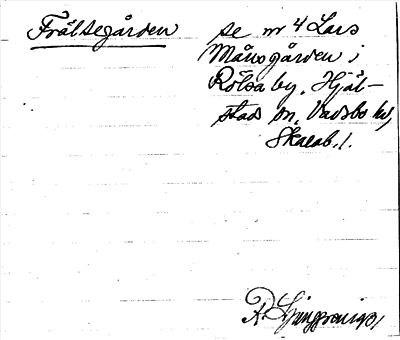 Frälsegården
se nr 4 Lars
Månsgården i
Rölsa by, Hjäl-
stad sn, Vadsbo hd,
Skarab. l.
R. Ljunggren 1901